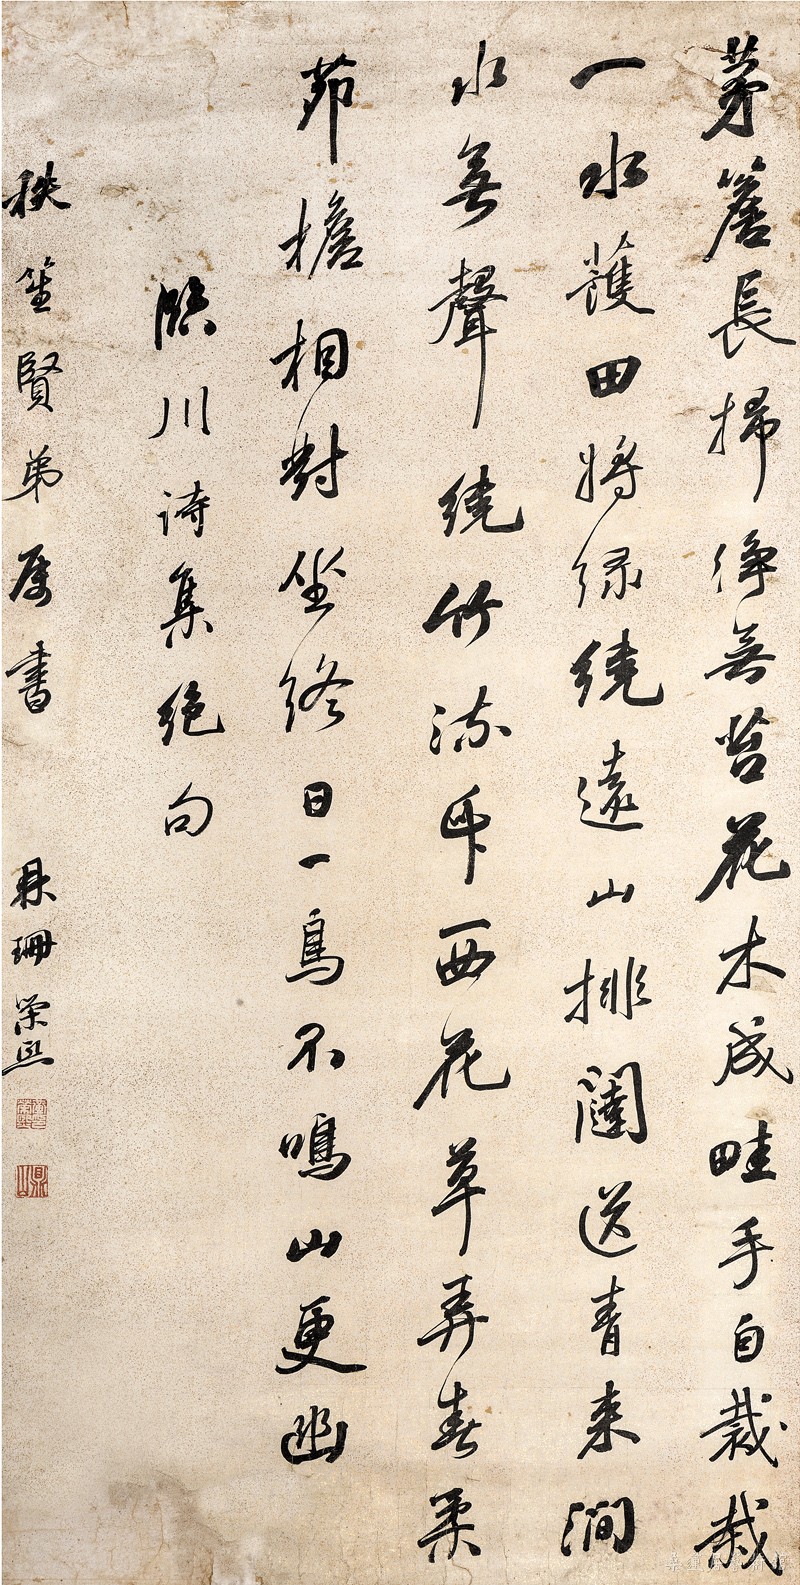 茅簷長掃淨無苔花木成畦手自裁栽
一水護田將綠繞遠山排闥送青來澗
水無聲繞竹流竹西花草弄春柔
茆檐相對坐終日一鳥不鳴山更幽
臨川詩集絕句
秩笙賢弟屬書 鼎珊榮熙